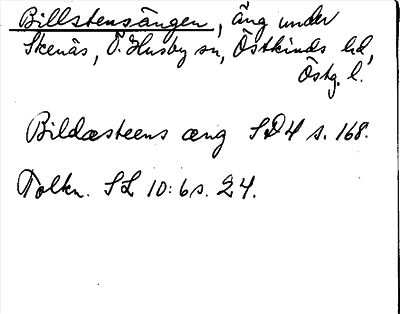 Billstensängen, äng under
Skenäs, Ö. Husby sn, Östkinds hd,
Östg. l.
Bildæsteens æng SD 4 s. 168.
Tolkn. SL 10:6 s. 24.